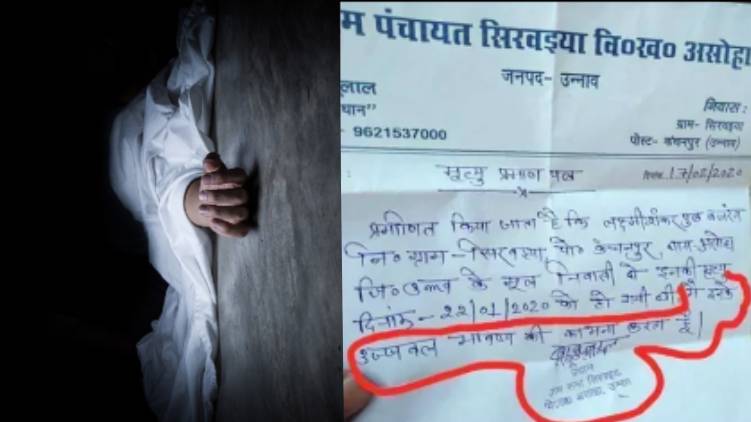 म पंचायत सिरवइया वि०ख० असोहा
जनपद- उन्नाव
लाल
धान"
- 9621537000
निवास :
ग्राम- सिरवइया
पोस्ट- कंचनपुर (उन्नाव)
मृत्यु प्रमाण पत्र
दिनांक 17/02/2020
प्रमाणित किया जाता है कि लक्ष्मीशंकर पुत्र बजरंग
नि० ग्राम- सिरवइया, पो० कंचनपुर, असोहा
जि० उन्नाव के मूल निवासी थे इनकी मृत्यु
दिनांक- 22/01/2020 को हो गयी थी मैं इनके
उज्जवल भविष्य की कामना करता हूँ।
प्रधान
ग्राम सभा सिरवइया
असोहा, उन्नाव